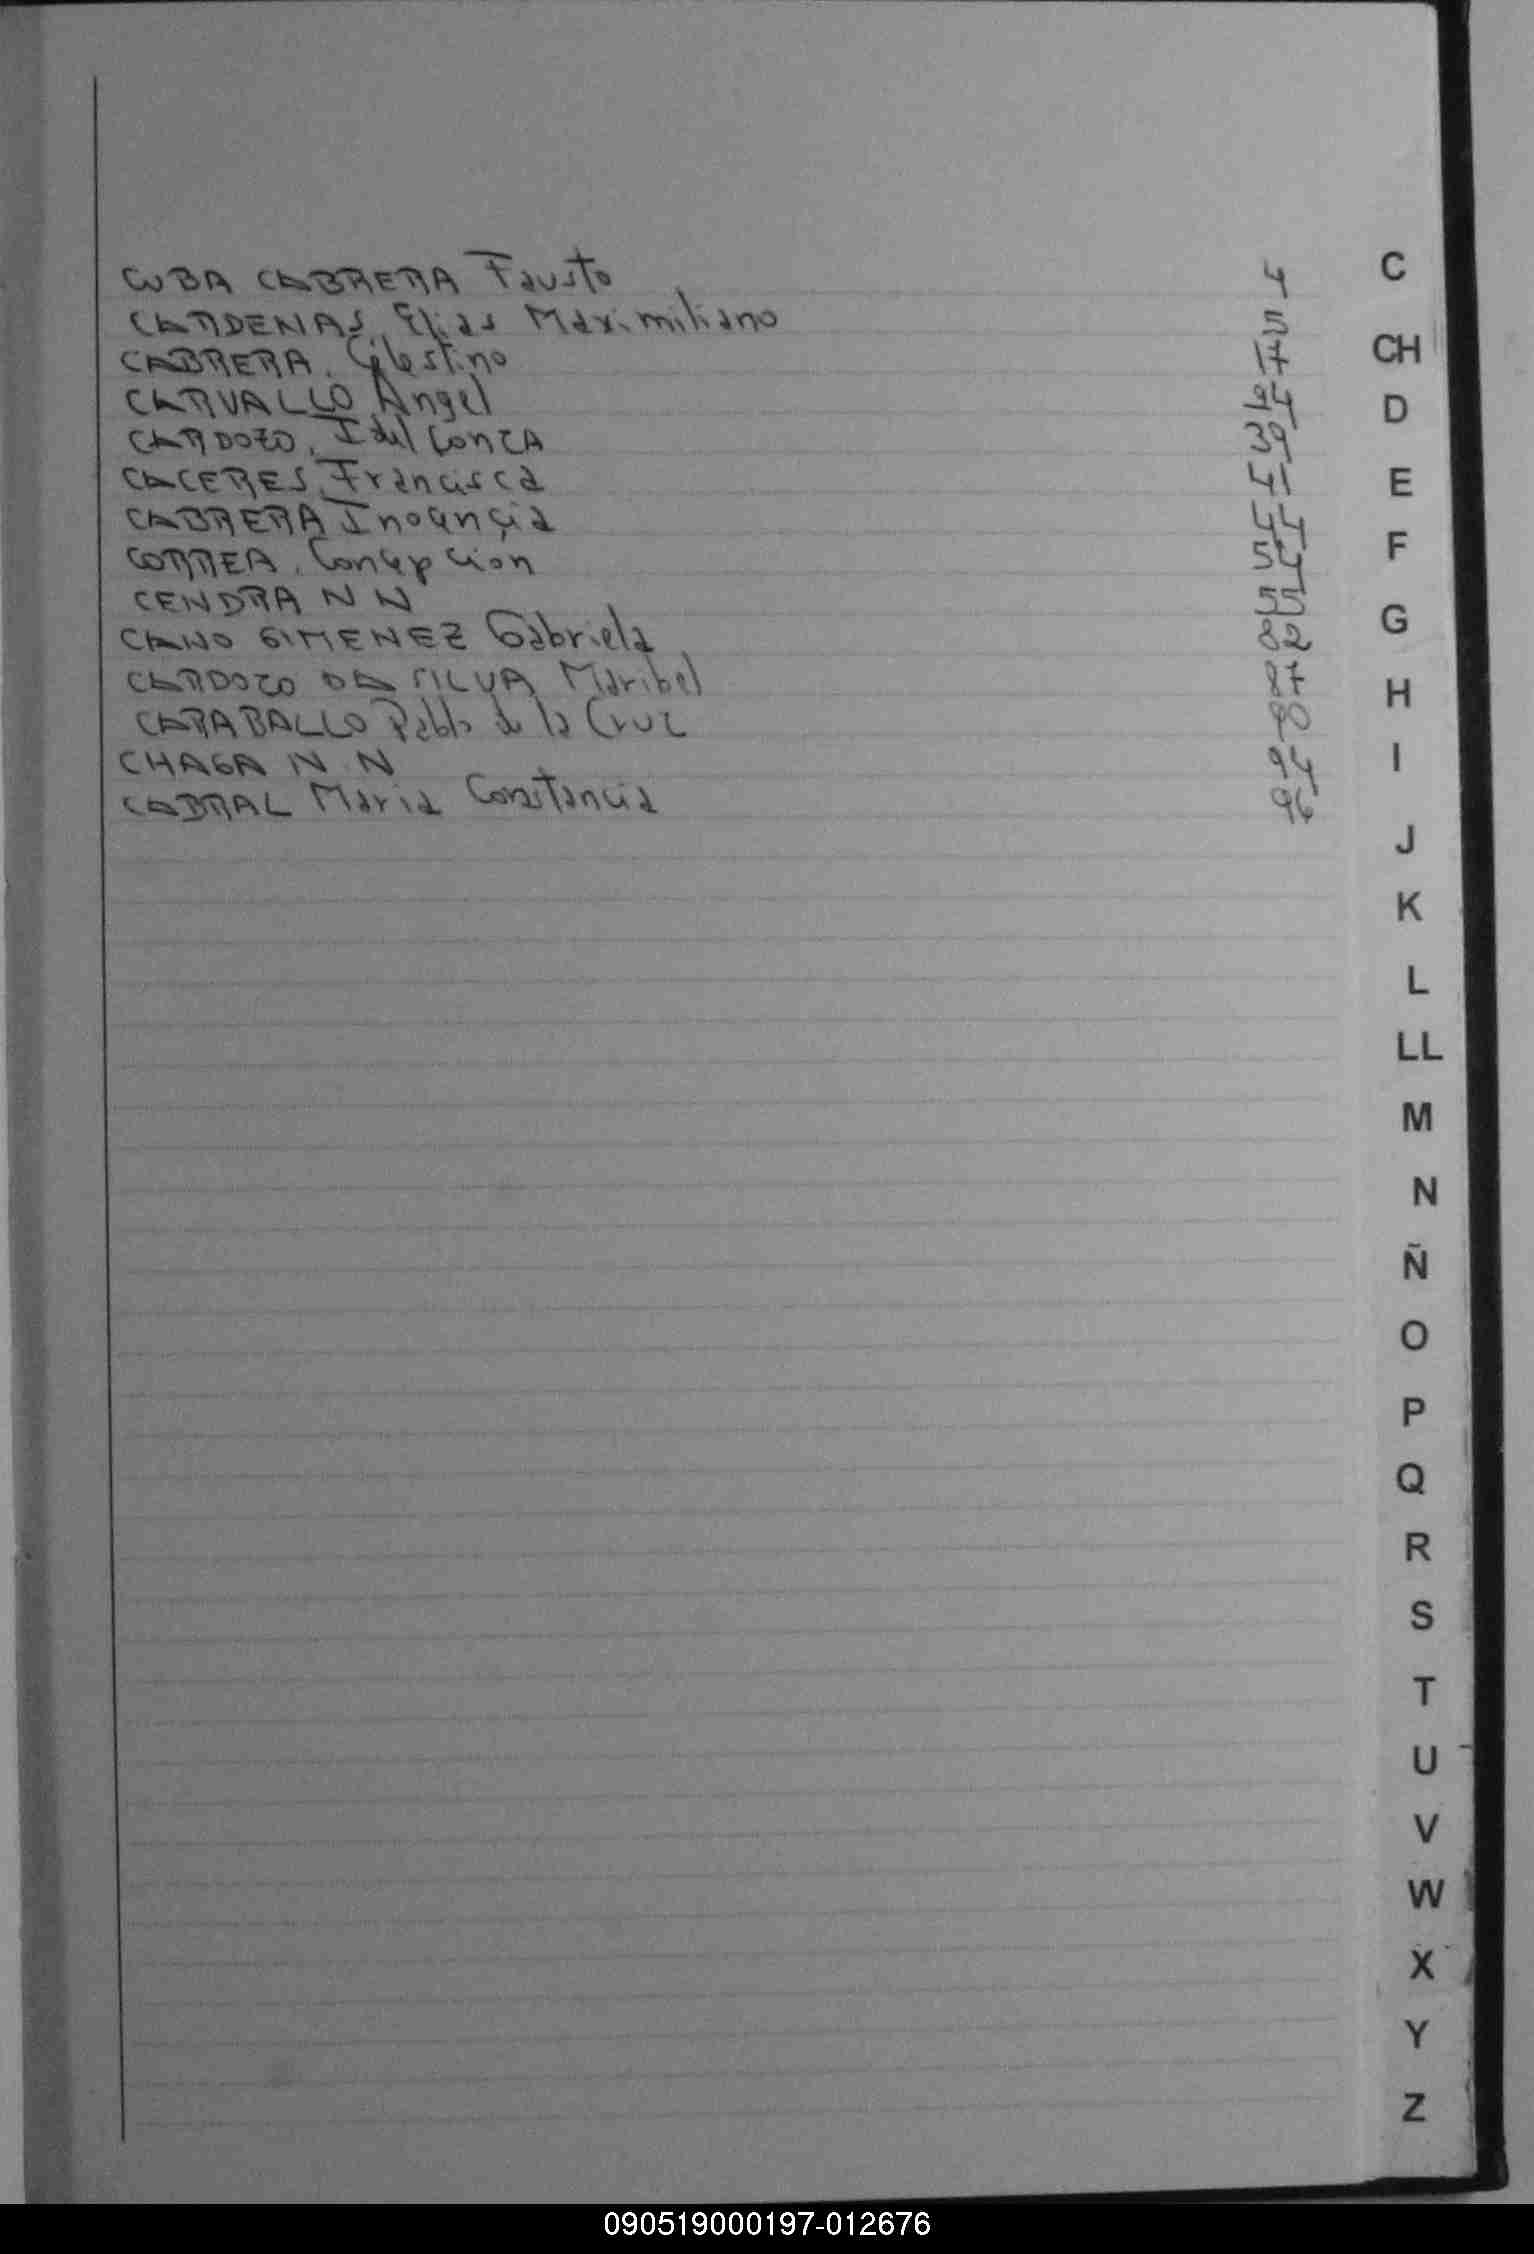 CUBA CABRERA Fausto 4
CARDENAS, Elias Maximiliano 5
CABRERA, Celestino 17
CARVALLO Angel 24
CARDOZO, Idelfonza 39
CACERES, Francisca 41
CABRERA Inocencia 44
CORREA, Concepcion 54
CENDRA N N 55
CANO GIMENEZ Gabriela 82
CARDOZO DA SILVA Maribel 87
CARABALLO Pablo de la Cruz 90
CHAGA N N 94
CABRAL Maria Constancia 96
C
CH
D
E
F
G
H
I
J
K
L
LL
M
N
Ñ
O
P
Q
R
S
T
U
V
W
X
Y
Z
090519000197-012676